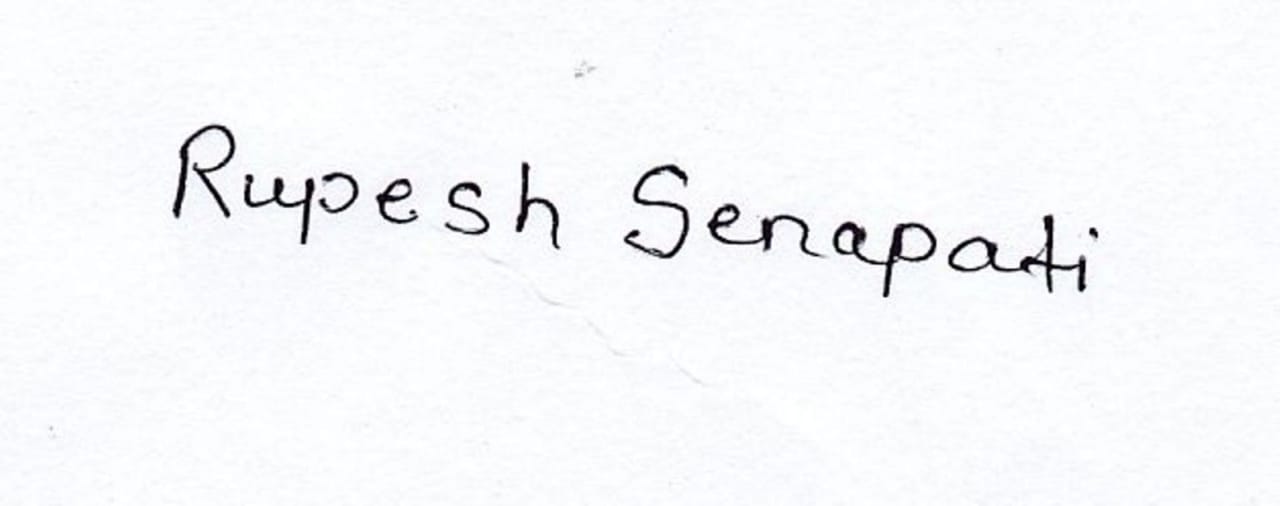 Rupesh Senapati